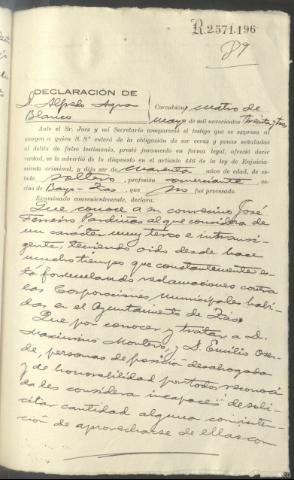 R.2571.196
89
DECLARACIÓN DE
D. Alfredo Agra
Blanco
Corcubión, cuatro de
mayo de mil novecientos treinta y tres
Ante el Sr. Juez y mi Secretario compareció el testigo que se expresa al
margen a quien S. Sª enteró de la obligación de ser veraz y penas señaladas
al delito de falso testimonio; prestó juramento en forma legal, ofreció decir
verdad, se le advirtió de lo dispuesto en el artículo 446 de la ley de Enjuicia-
miento criminal, y dijo ser de cuarenta años de edad, de es-
tado soltero, profesión comerciante, ve-
cino de Bayo-Zas, que no fué procesado.
Examinado convenientemente, declara:
Que conoce a su convecino José
Ferreiro Pardiñas al que considera de
un carácter muy terco e intransi-
gente, teniendo oido desde hace
mucho tiempo que constantemente es-
ta formulando reclamaciones contra
las Corporaciones municipales habi-
das en el Ayuntamiento de Zás.
Que por conocer y tratar a D.
Maximino Montero y D. Emilio
de, personas de posición desahogada
y de honorabilidad por todos reconoci-
da les considera incapaces de soli-
citar cantidad alguna con inten-
ción de aprovecharse de ellas con